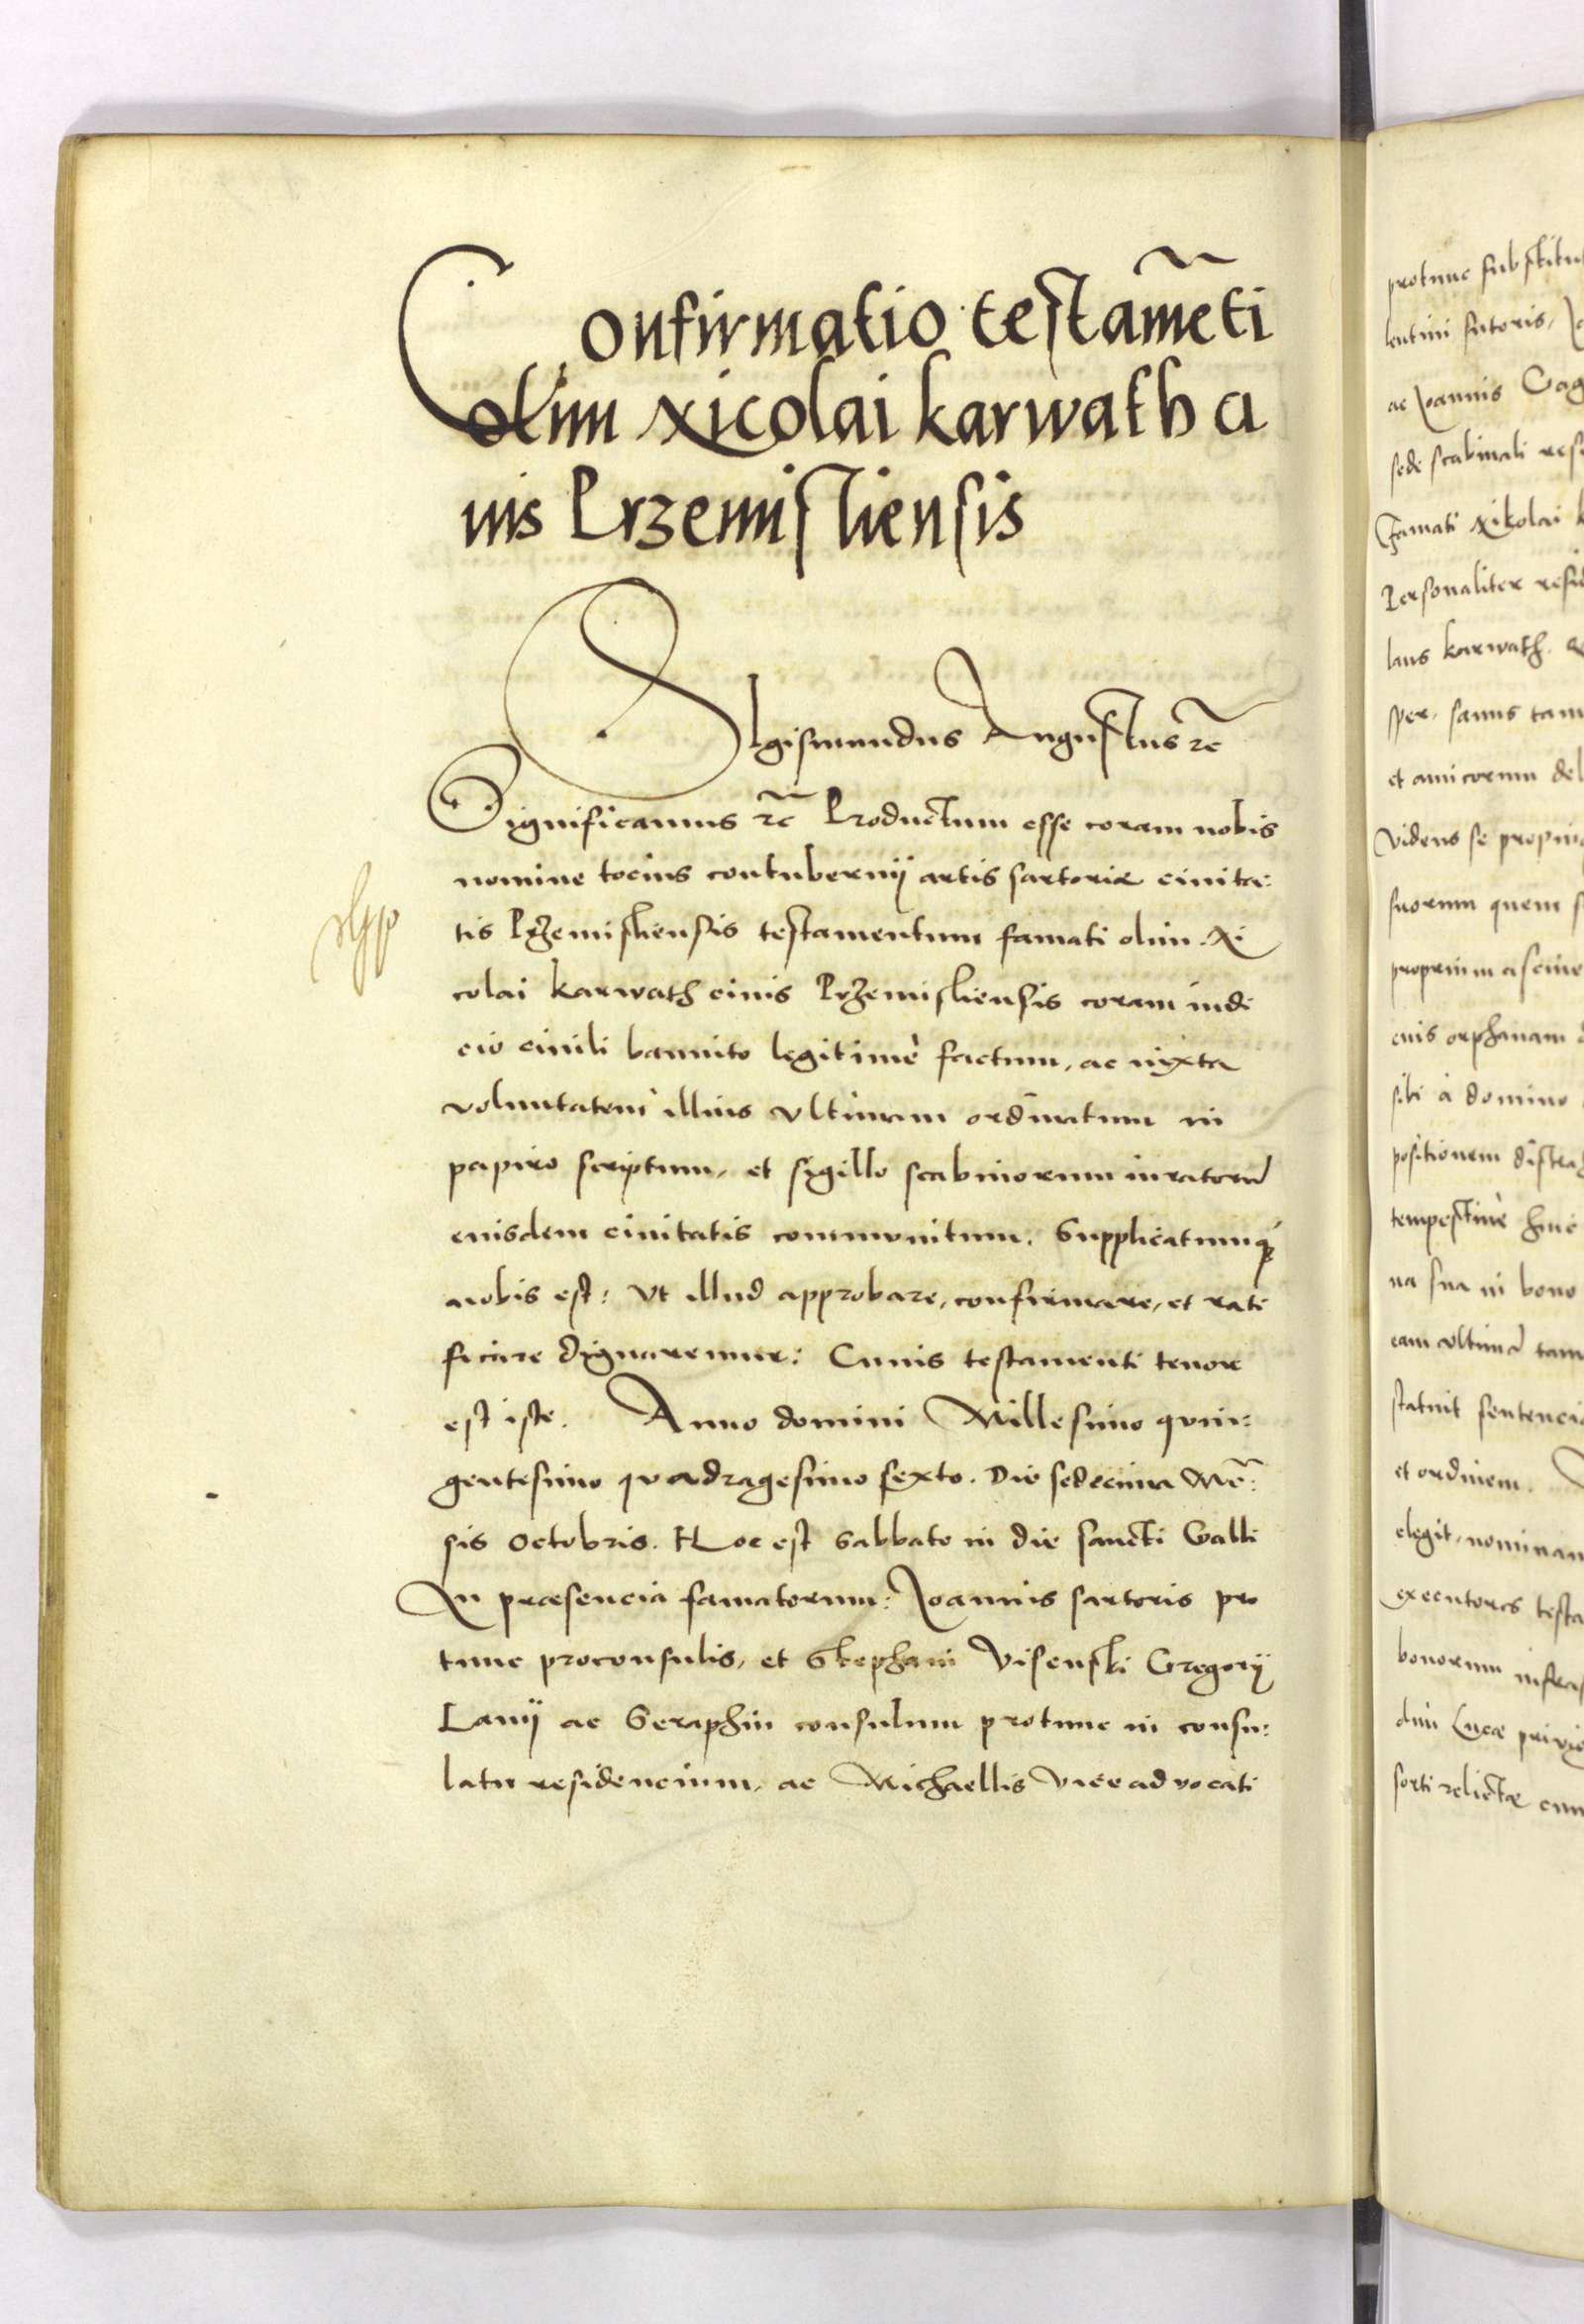 Confirmatio testam̃eti
olim Nicolai karwath ci
uis Przemisliensis
SIgismundus Augustus rc̃
Significamus rc̃ Productum esse coram nobis
nomine tocius contubernij artis sartoriæ ciuita:
tis Przemisliensis testamentum famati olim Ni
colai karwath ciuis Przemisliensis coram iudi
cio ciuili bannito legitimè factum, ac iuxta
voluntatem illius vltimam ordinatum in
papiro scriptum, et sigillo scabinorum iuratorũ
eiusdem ciuitatis communitum. Supplicatumq́
nobis est: Vt illud approbare, confirmare, et rati
ficare dignaremur: Cuius testamenti tenor
est iste. Anno domini Millesimo quin:
gentesimo quadragesimo sexto. Die sedecima Mẽ:
sis Octobris. Hoc est Sabbato in die sancti Galli
In præsencia famatorum: Joannis sartoris pro
tunc proconsulis, et Stephani Visenski Gregorij
Lanij ac Seraphin consulum protunc in consu:
latu residencium, ac Michaellis viceaduocati
protunc substitu
lentini sutoris, Jo
ac Joannis Gog
sede scabinali resi
famati Nikolai k
Personaliter resid
laus karwath
per, sanus tam
et amicorum deb
videns se propin
suorum quem s
proprium ascine
cuis orphanam
sibi à domino
positionem distra
tempestiuè huic
na sua in bono
eam vltimã tam
statuit sentenci
et ordinem.
elegit, nominau
executores testa
bonorum infras
dini Lucæ priuig
sorti relictæ cum